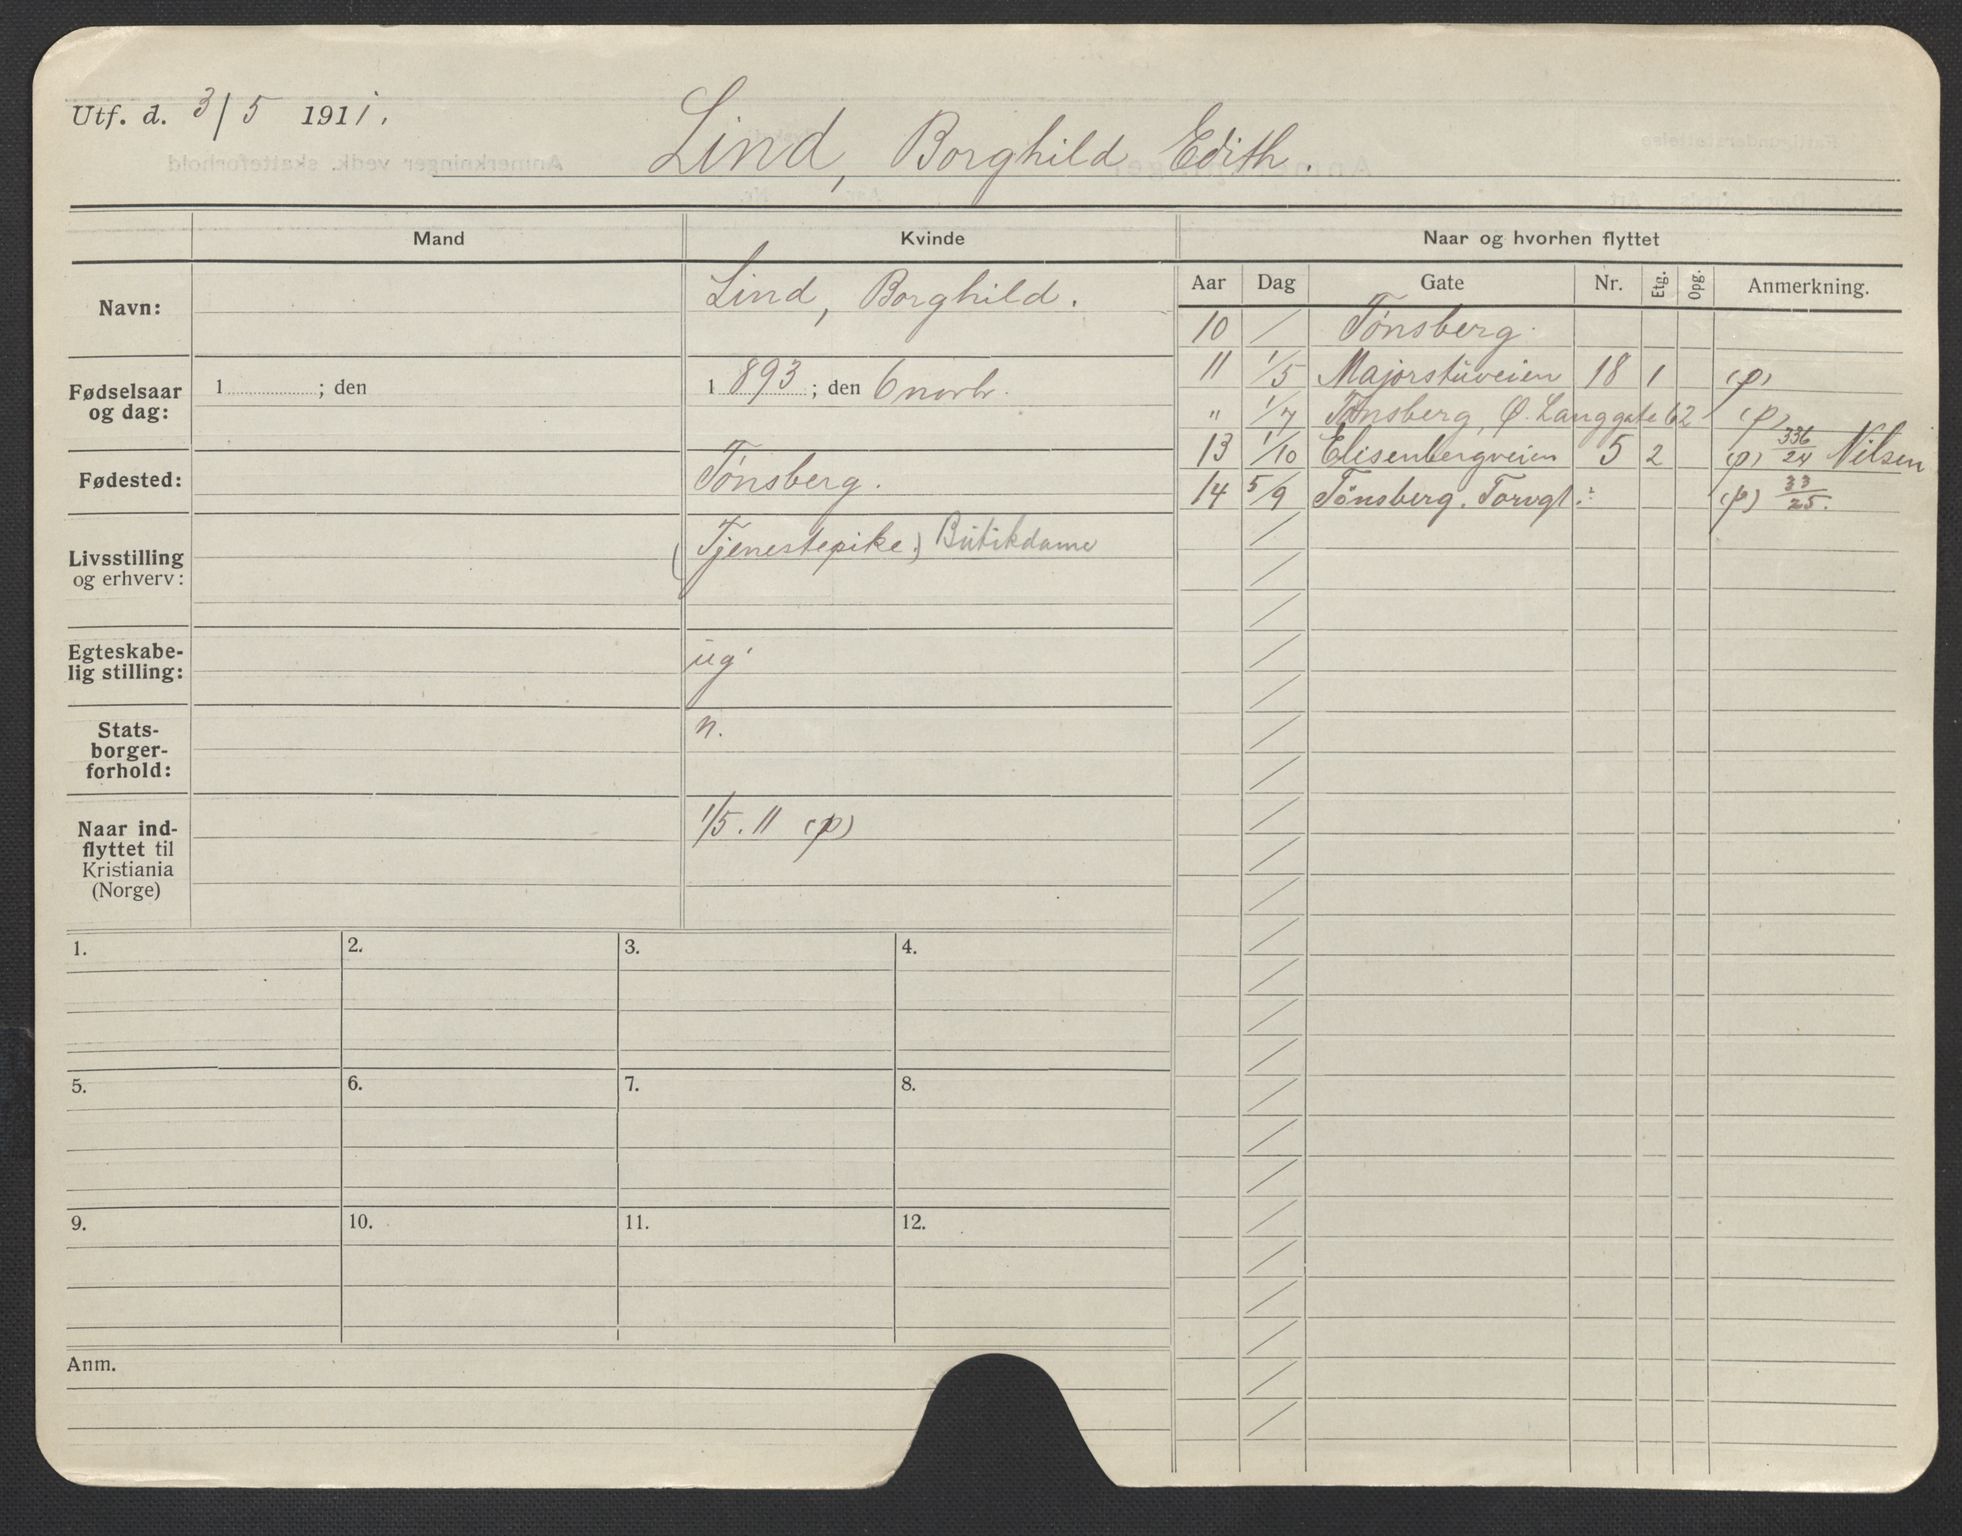 Utf. d. 3/5 1911.
Lind, Borghild Edith.
Mand
Kvinde
Naar og hvorhen flyttet
Navn:
Lind, Borghild.
Fødselsaar og dag:
1 ; den
1 893 ; den 6 novbr.
Fødested:
Tönsberg.
Livsstilling og erhverv:
(Tjenestepike.) Butikdame
Egteskabe-
lig stilling:
ug.
Stats-
borger-
forhold:
n.
Naar ind-
flyttet til
Kristiania
(Norge)
1/5. 11 (p)
Aar Dag Gate Nr. Etg. Opg. Anmerkning.
10 / Tönsberg.
11 1/5 Majorstuveien 18 1 (p)
" 1/7 Tönsberg, Ø. Langgate 62 (p)
13 1/10 Elisenbergveien 5 2 (p) 336/24 Nilsen
14 5/9 Tönsberg. Torvgt. (p) 33/25.
1. 2. 3. 4.
5. 6. 7. 8.
9. 10. 11. 12.
Anm.